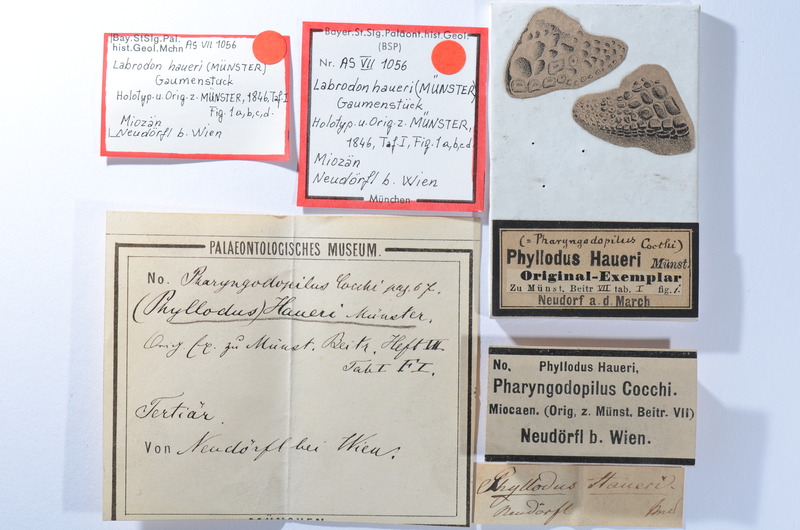 Bay. St. Slg. Pal.
hist. Geol. Mchn AS VII 1056
Labrodon haueri (MÜNSTER)
Gaumenstück
Holotyp. u. Orig. z. MÜNSTER, 1846, Taf. I
Fig. 1 a, b, c, d.
Miozän
Neudörfl b. Wien
Bayer. St. Slg. Paläont. hist. Geol.
(BSP)
Nr. AS VII 1056
Labrodon haueri (MÜNSTER)
Gaumenstück
Holotyp. u. Orig. z. MÜNSTER,
1846, Taf I, Fig. 1 a, b, c, d
Miozän
Neudörfl b. Wien
München
(= Pharyngodopilus Cocchi)
Phyllodus Haueri Münst.
Original-Exemplar
Zu Münst. Beitr. VII tab. I fig. 1.
Neudorf a. d. March
PALAEONTOLOGISCHES MUSEUM.
No. Pharyngodopilus Cocchi pag. 67.
(Phyllodus) Haueri Münster.
Orig. Ex. zu Münst. Beitr. Heft VII
Tab I F I.
Tertiär.
Von Neudörfl bei Wien.
MÜNCHEN
No. Phyllodus Haueri,
Pharyngodopilus Cocchi.
Miocaen. (Orig. z. Münst. Beitr. VII)
Neudörfl b. Wien.
Phyllodus Haueri.
Neudörfl